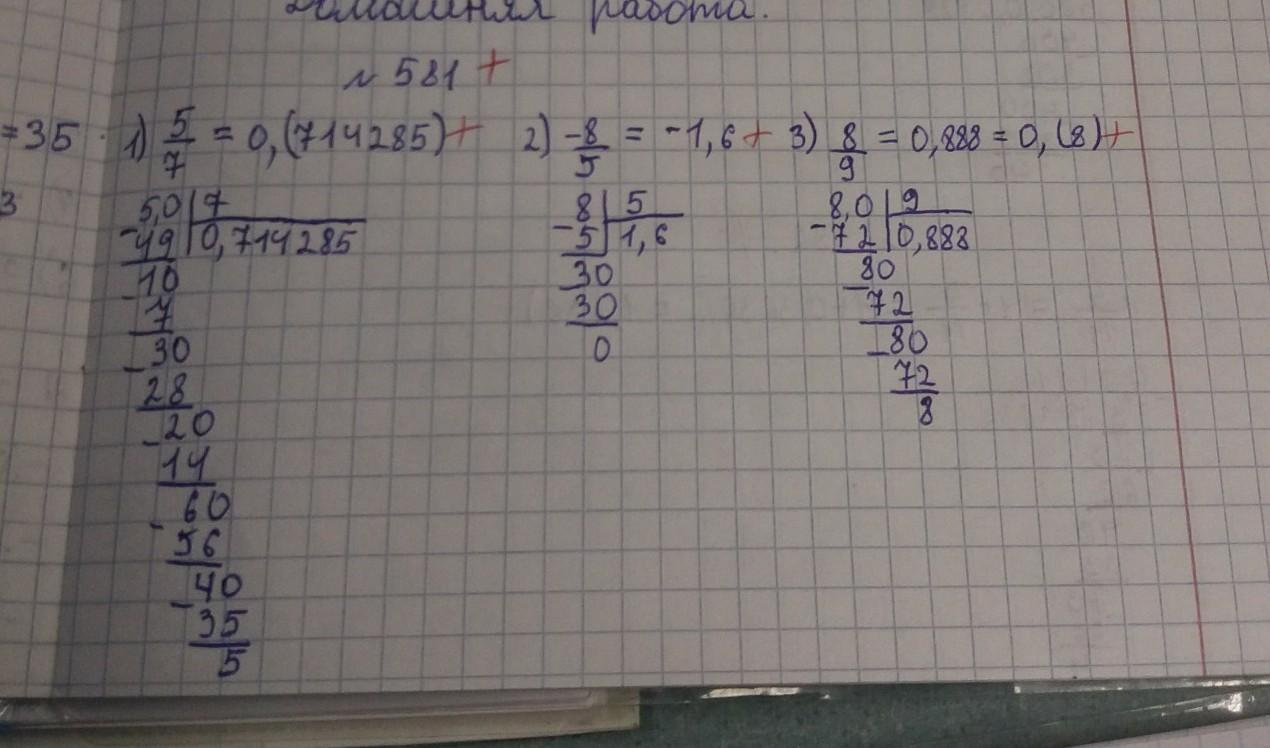 Домашняя работа.
№ 581 +
=35 · 1) 5/7 = 0,(714285)+ 2) -8/5 = -1,6 + 3) 8/9 = 0,888 = 0,(8)+
3 5,0 | 7 8 | 5 8,0 | 9
-49 | 0,714285 -5 | 1,6 -72 | 0,888
10 30 80
-7 30 -72
-30 0 -80
28 72
-20 8
14
-60
56
-40
35
5